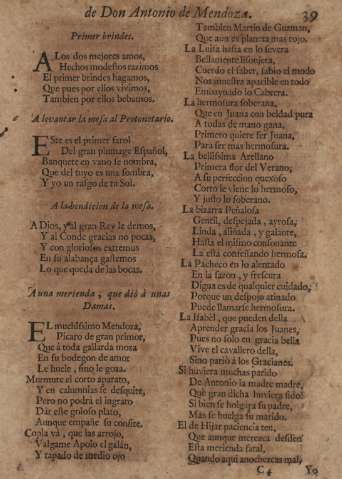 de Don Antonio de Mendoza. 39
Primer brindes.
A Los dos mejores amos,
Hechos modestos racimos
El primer brindes hagamos,
Que pues por ellos vivimos,
Tambien por ellos bebamos.
A levantar la mesa al Protonotario.
Este es el primer farol
Del gran plumage Español,
Banquete en vano se nombra,
Que del tuyo es una sombra,
Y yo un rasgo de tu Sol.
A la bendicion de la mesa.
A Dios, y al gran Rey le demos,
Y al Conde gracias no pocas,
Y con gloriosos extremos
En su alabança gastemos
Lo que queda de las bocas.
A una merienda, que diò à unas
Damas.
EL muchissimo Mendoza,
Picaro de gran primor,
Que à toda gallarda moza
En su bodegon de amor
Le huele, sino le goza.
Murmure el corto aparato,
Y en calumnias se desquite,
Pero no podrà el ingrato
Dar este goloso plato,
Aunque empañe su confite.
Copla và, que las arrojo,
Valgame Apolo el galán,
Y tapado de medio ojo
Tambien Martio de Guzman,
Que aun es planeta mas rojo.
La Luisa hasta en lo severa
Bellamente lisonjera,
Cuerdo el saber, sabio el modo
Nos muestra apacible en todo
Emmayado lo Cabrera.
La hermosura soberana,
Que en Juana con beldad pura
A todas de mano gana,
Primero quiere ser Juana,
Para ser mas hermosura.
La bellissima Arellano
Primera flor del Verano,
A su perfeccion quexoso
Corto le viene lo hermoso,
Y justo lo soberano.
La bizarra Peñalosa
Gentil, despejada, ayrosa,
Linda, aliñada, y galante,
Hasta el mismo consonante
La està confessando hermosa.
La Pacheco en lo alentado
En la sazon, y frescura
Digna es de qualquier cuidado,
Porque un despojo atinado
Puede llamarse hermosura.
La Isabel, que pueden della
Aprender gracia los Juanes,
Pues no solo en gracia bella
Vive el cavallero della,
Sino pariò à los Gracianes.
Si huviera muchas parido
De Antonio la madre madre,
Què gran dicha huviera sido
Si bien se holgara su padre,
Mas se huelga su marido.
El de Hijar paciencia ten,
Que aunque merezca desden
Esta merienda fatal,
Quando aqui anochezcas mal,
C4 Yo